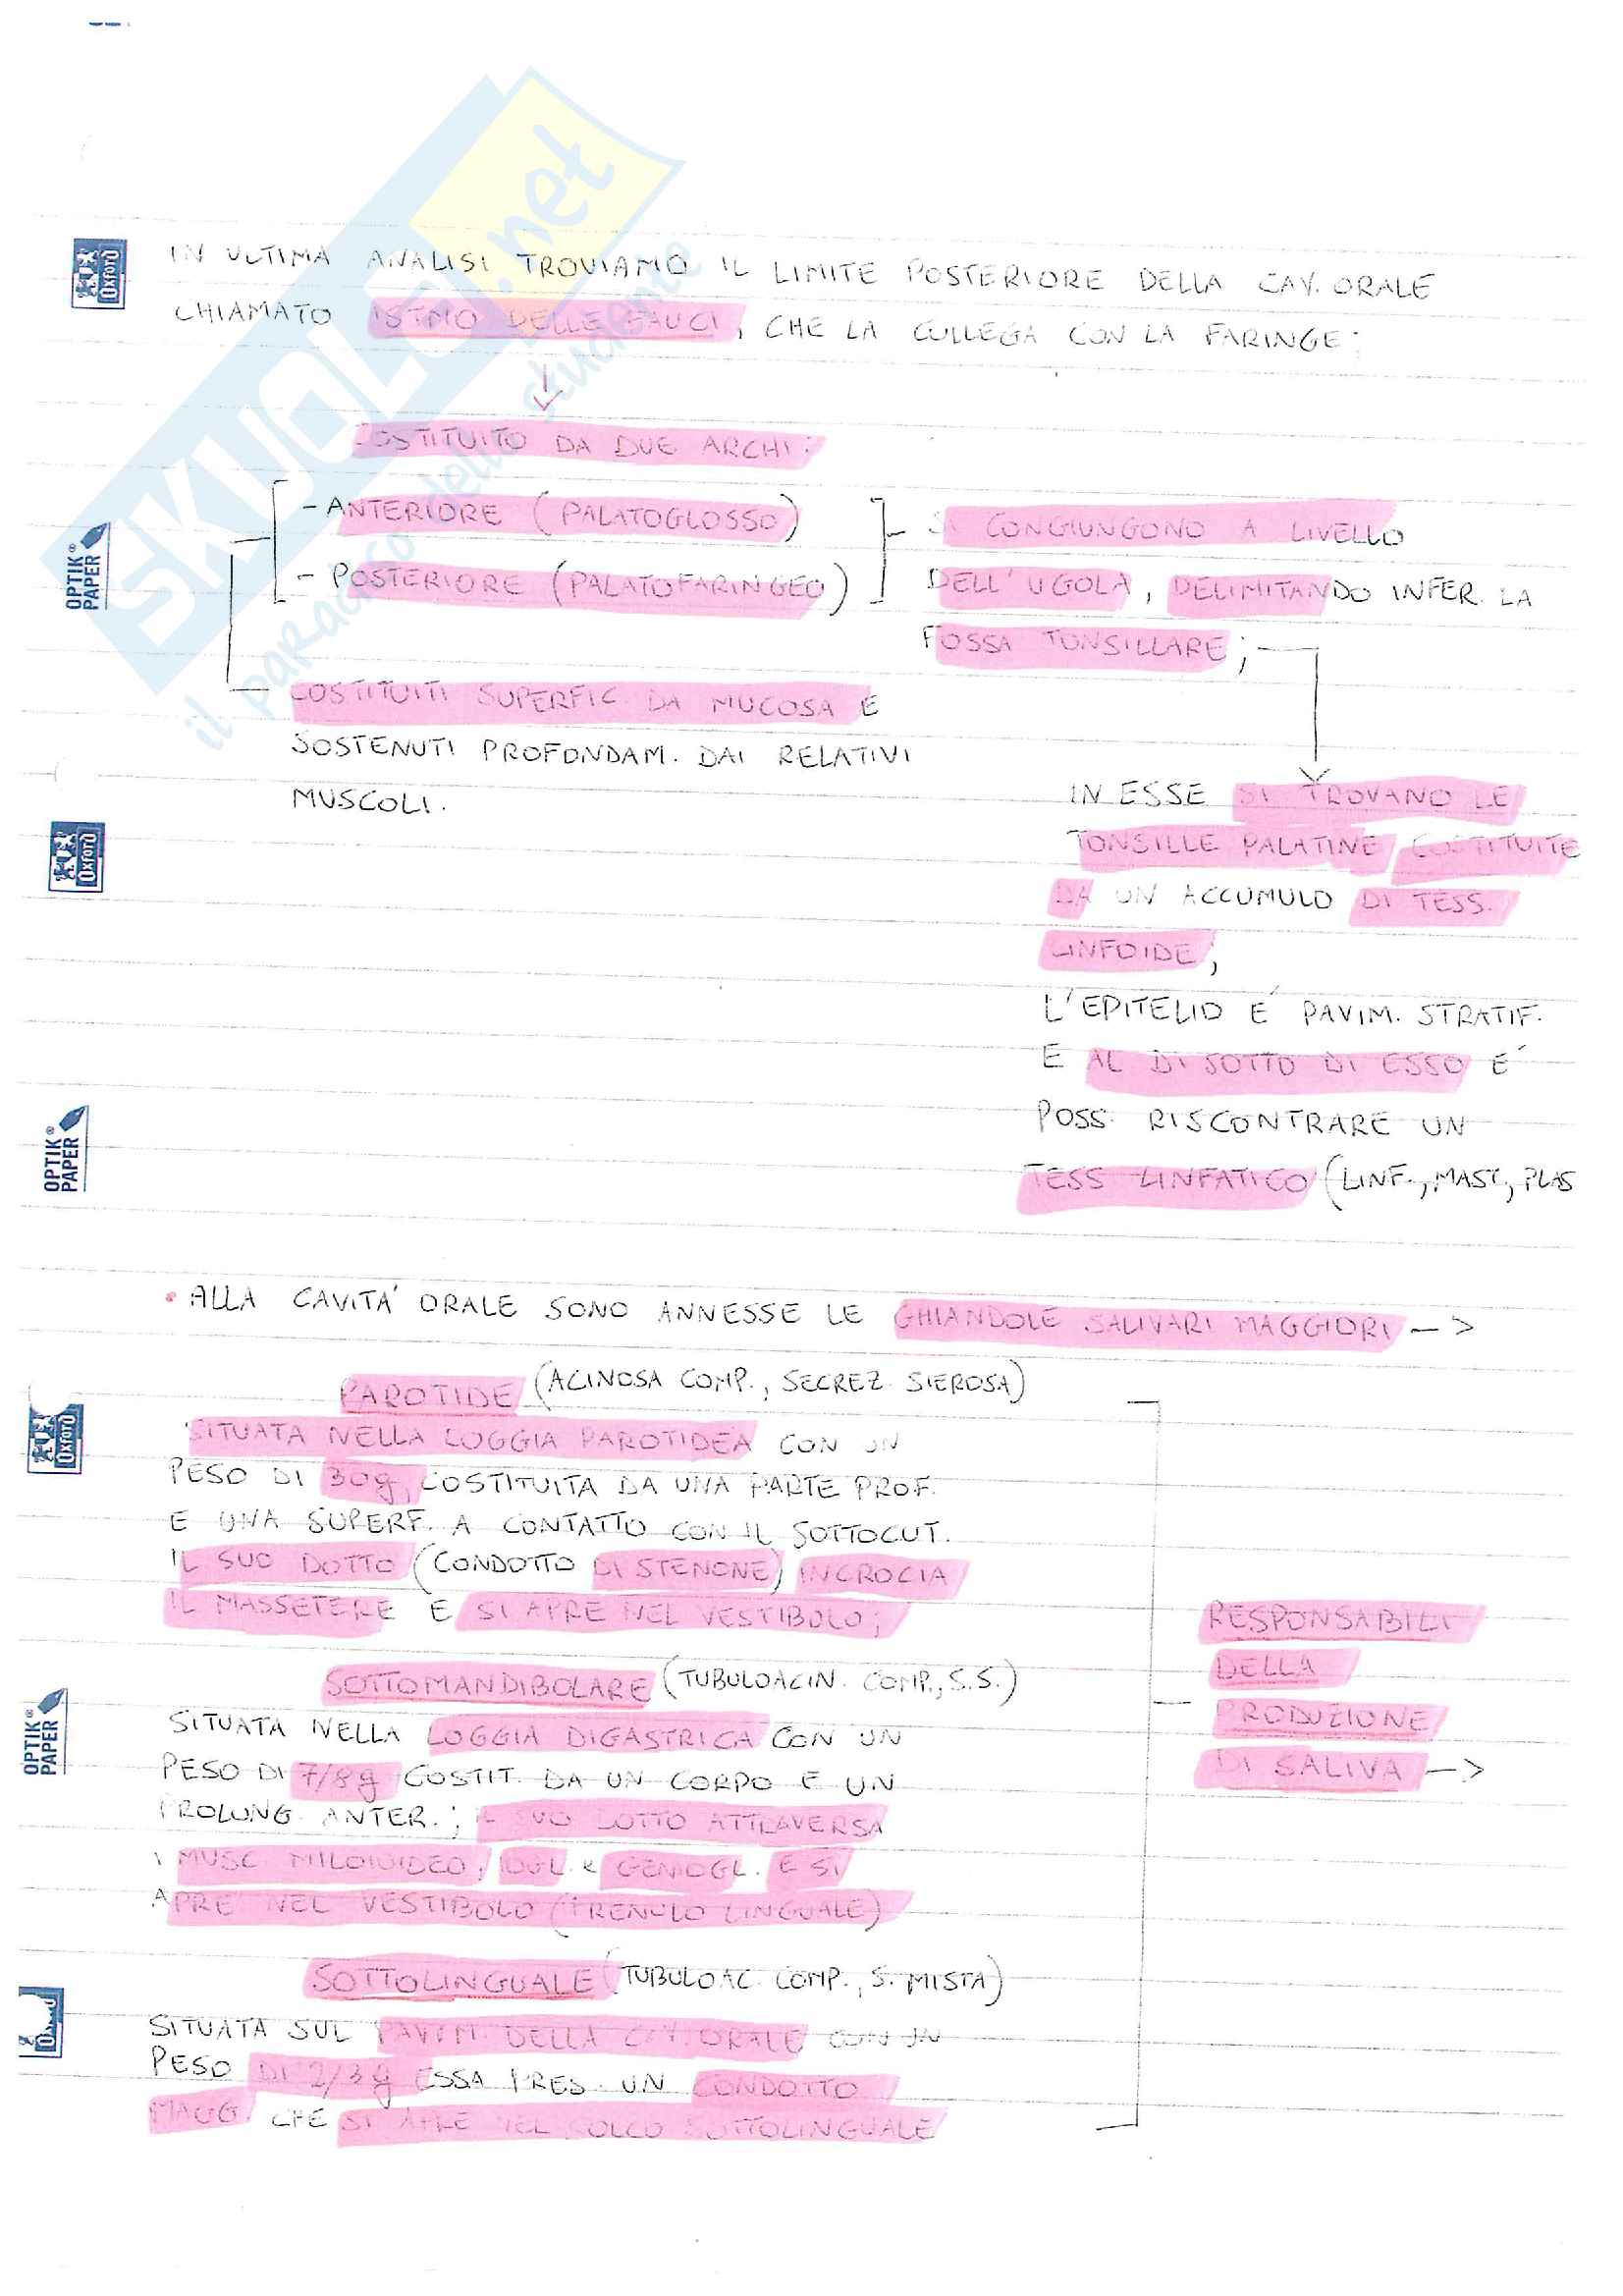 IN ULTIMA ANALISI TROVIAMO IL LIMITE POSTERIORE DELLA CAV. ORALE
CHIAMATO ISTMO DELLE FAUCI, CHE LA COLLEGA CON LA FARINGE:
COSTITUITO DA DUE ARCHI:
- ANTERIORE (PALATOGLOSSO)
- POSTERIORE (PALATOFARINGEO)
SI CONGIUNGONO A LIVELLO
DELL'UGOLA, DELIMITANDO INFER. LA
FOSSA TONSILLARE;
COSTITUITI SUPERFIC. DA MUCOSA E
SOSTENUTI PROFONDAM. DAI RELATIVI
MUSCOLI.
IN ESSE SI TROVANO LE
TONSILLE PALATINE COSTITUITE
DA UN ACCUMULO DI TESS.
LINFOIDE;
L'EPITELIO E' PAVIM. STRATIF.
E AL DI SOTTO DI ESSO E'
POSS. RISCONTRARE UN
TESS LINFATICO (LINF., MAST., PLAS
• ALLA CAVITA' ORALE SONO ANNESSE LE GHIANDOLE SALIVARI MAGGIORI -->
PAROTIDE (ACINOSA COMP., SECREZ. SIEROSA)
SITUATA NELLA LOGGIA PAROTIDEA CON UN
PESO DI 30g, COSTITUITA DA UNA PARTE PROF.
E UNA SUPERF. A CONTATTO CON IL SOTTOCUT.
IL SUO DOTTO (CONDOTTO DI STENONE) INCROCIA
IL MASSETERE E SI APRE NEL VESTIBOLO;
SOTTOMANDIBOLARE (TUBULOACIN. COMP., S.S.)
SITUATA NELLA LOGGIA DIGASTRICA CON UN
PESO DI 7/8g COSTIT. DA UN CORPO E UN
PROLUNG. ANTER.; IL SUO DOTTO ATTRAVERSA
I MUSC. MILOIOIDEO, IOGL. E GENIOGL. E SI
APRE NEL VESTIBOLO (FRENULO LINGUALE)
SOTTOLINGUALE (TUBULOAC. COMP., S. MISTA)
SITUATA SUL PAVIM. DELLA CAV. ORALE CON UN
PESO DI 2/3g ESSA PRES. UN CONDOTTO
MAGG. CHE SI APRE NEL SOLCO SOTTOLINGUALE
RESPONSABILI
DELLA
PRODUZIONE
DI SALIVA -->
SKUOLA.net
il paradiso dello studente
Oxford
OPTIK® PAPER
Oxford
OPTIK® PAPER
Oxford
OPTIK® PAPER